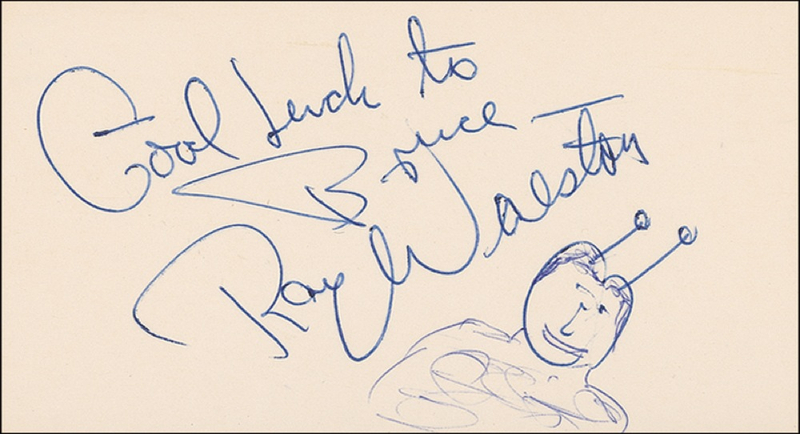 Good Luck to
Bruce
Ray Walston